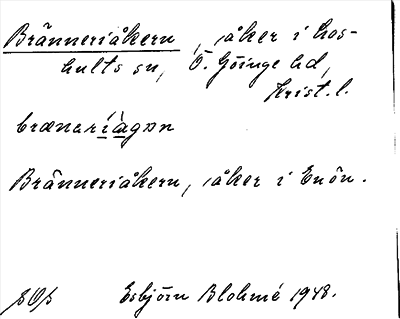 Bränneriåkern, åker i Los-
hults sn, Ö. Göinge hd,
Krist. l.
brænəríàgən
Bränneriåkern, åker i Enön.
Esbjörn Blohmé 1948.